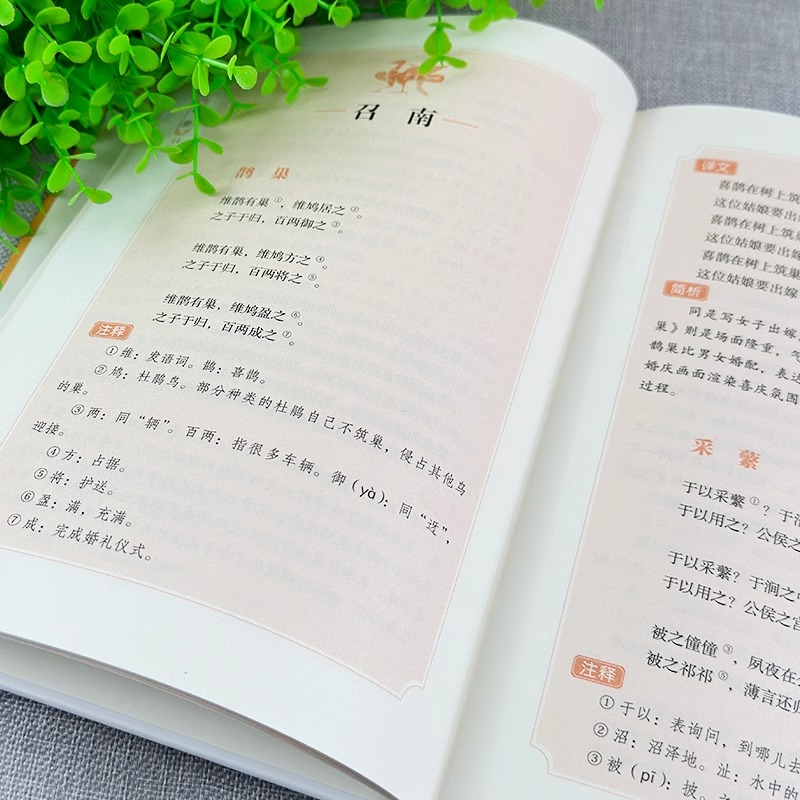 召南
鹊巢
维鹊有巢①，维鸠居之②。
之子于归，百两御之③。
维鹊有巢，维鸠方之④。
之子于归，百两将之⑤。
维鹊有巢，维鸠盈之⑥。
之子于归，百两成之⑦。
注释
①维：发语词。鹊：喜鹊。
②鸠：杜鹃鸟。部分种类的杜鹃自己不筑巢，侵占其他鸟
的巢。
③两：同“辆”。百两：指很多车辆。御（yà）：同“迓”，
迎接。
④方：占据。
⑤将：护送。
⑥盈：满，充满。
⑦成：完成婚礼仪式。
译文
喜鹊在树上筑
这位姑娘要出嫁
喜鹊在树上筑
这位姑娘要出嫁
喜鹊在树上筑巢
这位姑娘要出嫁
简析
同是写女子出嫁
巢》则是场面隆重，气
鹊巢比男女婚配，表达
婚庆画面渲染喜庆氛围
过程。
采蘩
于以采蘩①？于涧
于以用之？公侯之
于以采蘩？于涧之中
于以用之？公侯之宫
被之僮僮③，夙夜在公
被之祁祁⑤，薄言还归
注释
①于以：表询问，到哪儿去
②沼：沼泽地。沚：水中的
③被（pī）：披。